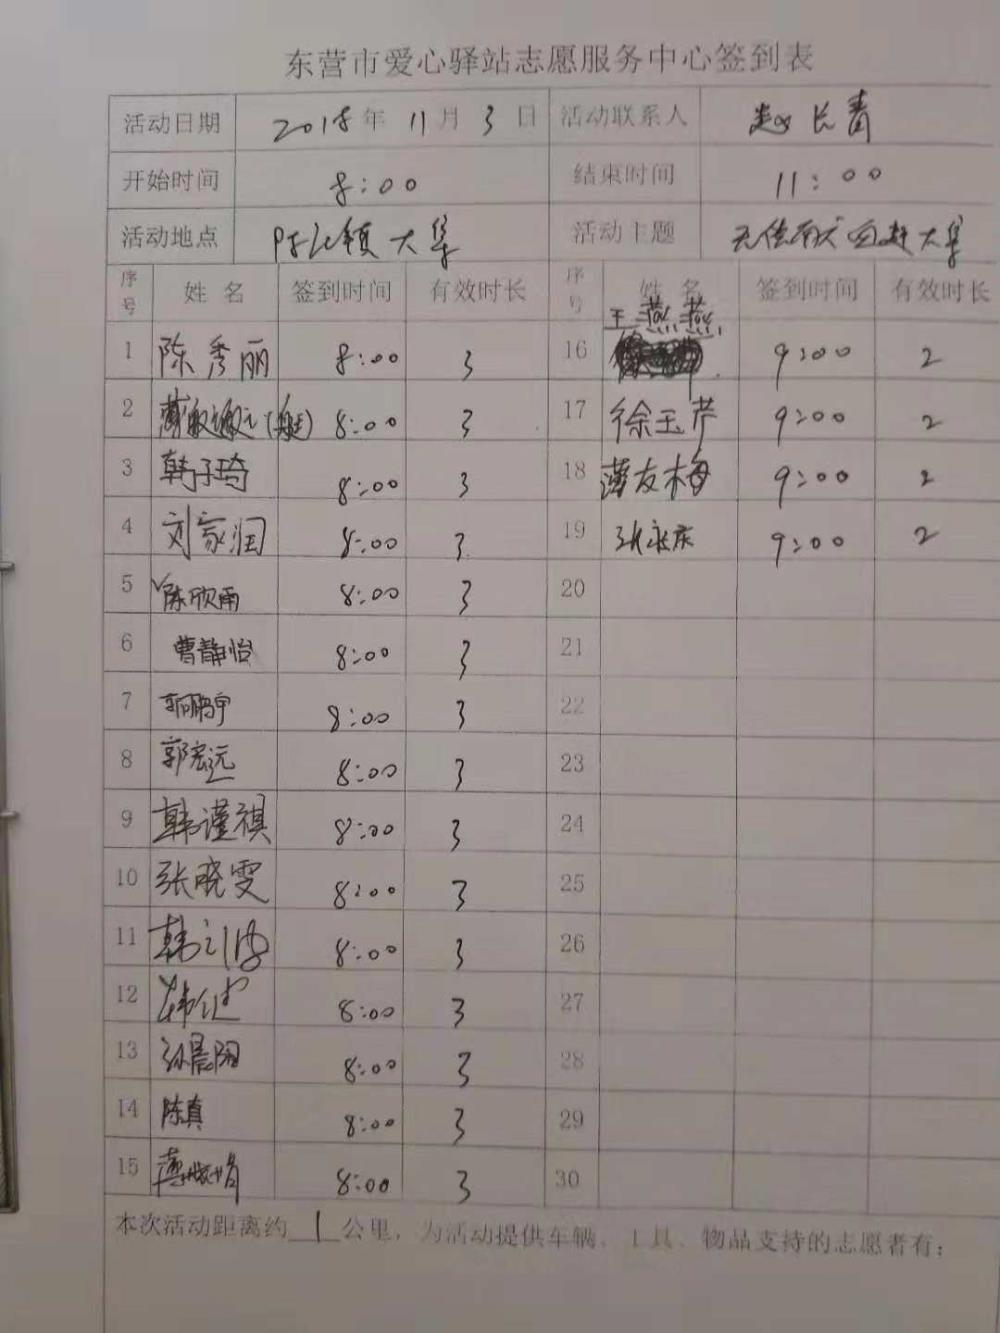 东营市爱心驿站志愿服务中心签到表
活动日期 2018年 11月 3日 活动联系人 赵长青
开始时间 8:00 结束时间 11:00
活动地点 陈庄镇大集 活动主题 无偿献血 赶大集
序号 姓名 签到时间 有效时长 序号 姓名 签到时间 有效时长
1 陈秀丽 8:00 3 16 王燕燕 9:00 2
2 8:00 3 17 徐玉芹 9:00 2
3 韩子琦 8:00 3 18 薄友梅 9:00 2
4 刘家润 8:00 3 19 张永庆 9:00 2
5 陈欣雨 8:00 3 20
6 曹静怡 8:00 3 21
7 8:00 3 22
8 郭宏远 8:00 3 23
9 韩谨祺 8:00 3 24
10 张晓雯 8:00 3 25
11 韩 8:00 3 26
12 韩 8:00 3 27
13 孙晨阳 8:00 3 28
14 陈真 8:00 3 29
15 薄 娟 8:00 3 30
本次活动距离约 1 公里，为活动提供车辆、工具、物品支持的志愿者有：